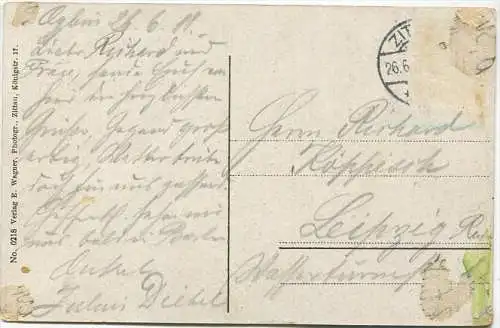 Oybin 26/6 11.
Lieber Richard und
Frau, sende Euch von
hier die herzlichsten
Grüße, Gegend groß
artig, Wetter trübe
doch für uns passend.
Hoffentl. sehen wir
uns bald in
Onkel
Julius Dietel
No. 0218 Verlag E. Wagner, Photogr., Zittau, Königstr. 17.
ZIT
26.6
Herrn Richard
Köppisch
Leipzig
Wasserturmstr